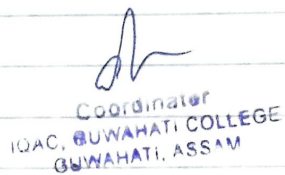 Coordinator
IQAC, GUWAHATI COLLEGE
GUWAHATI, ASSAM